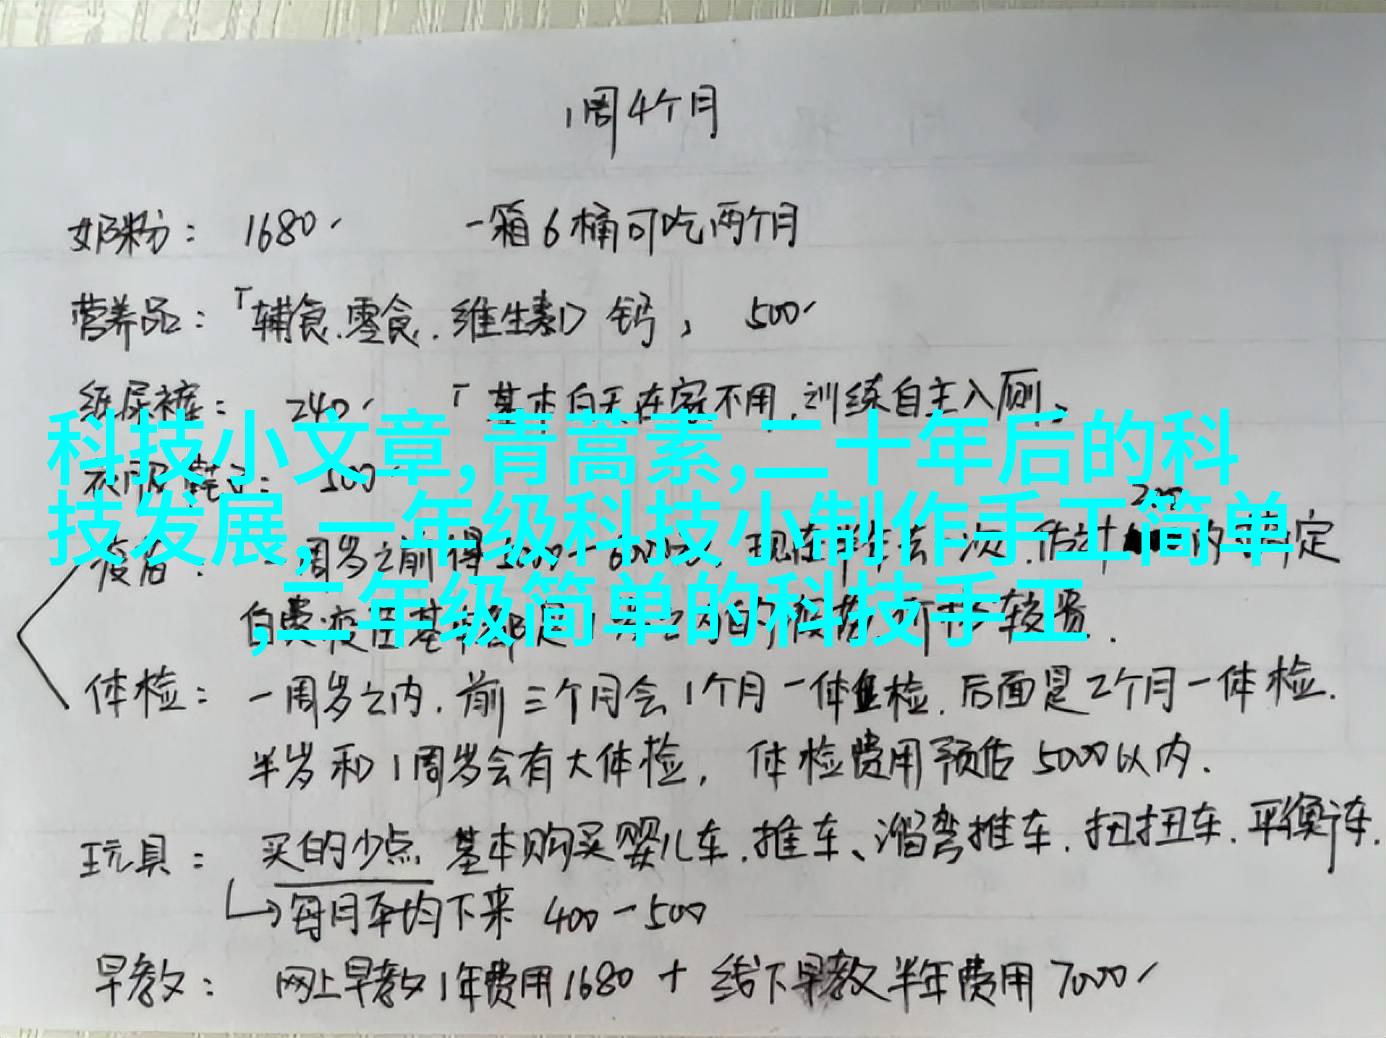 1周4个月
奶粉： 1680 一箱6桶可吃两个月
营养品：「辅食.零食.维生素D 钙， 500
纸尿裤： 240 「基本白天在家不用.训练自主入厕、
科技小文章,青蒿素,二十年后的科
500
200
技发展,一年级科技小制作手工简单
一周岁之前得 现在半年去一次.估计 的
,二年级简单的科技手工
自费疫苗基本都是1岁之内的 较贵.
体检： 一周岁之内.前三个月会1个月一体检.后面是2个月一体检.
半岁和1周岁会有大体检， 体检费用预估5000以内.
玩具： 买的少点 基本购买婴儿车.推车、溜弯推车.扭扭车.平衡车.
每月平均下来 400-500
早教： 网上早教1年费用1680 + 线下早教半年费用7000